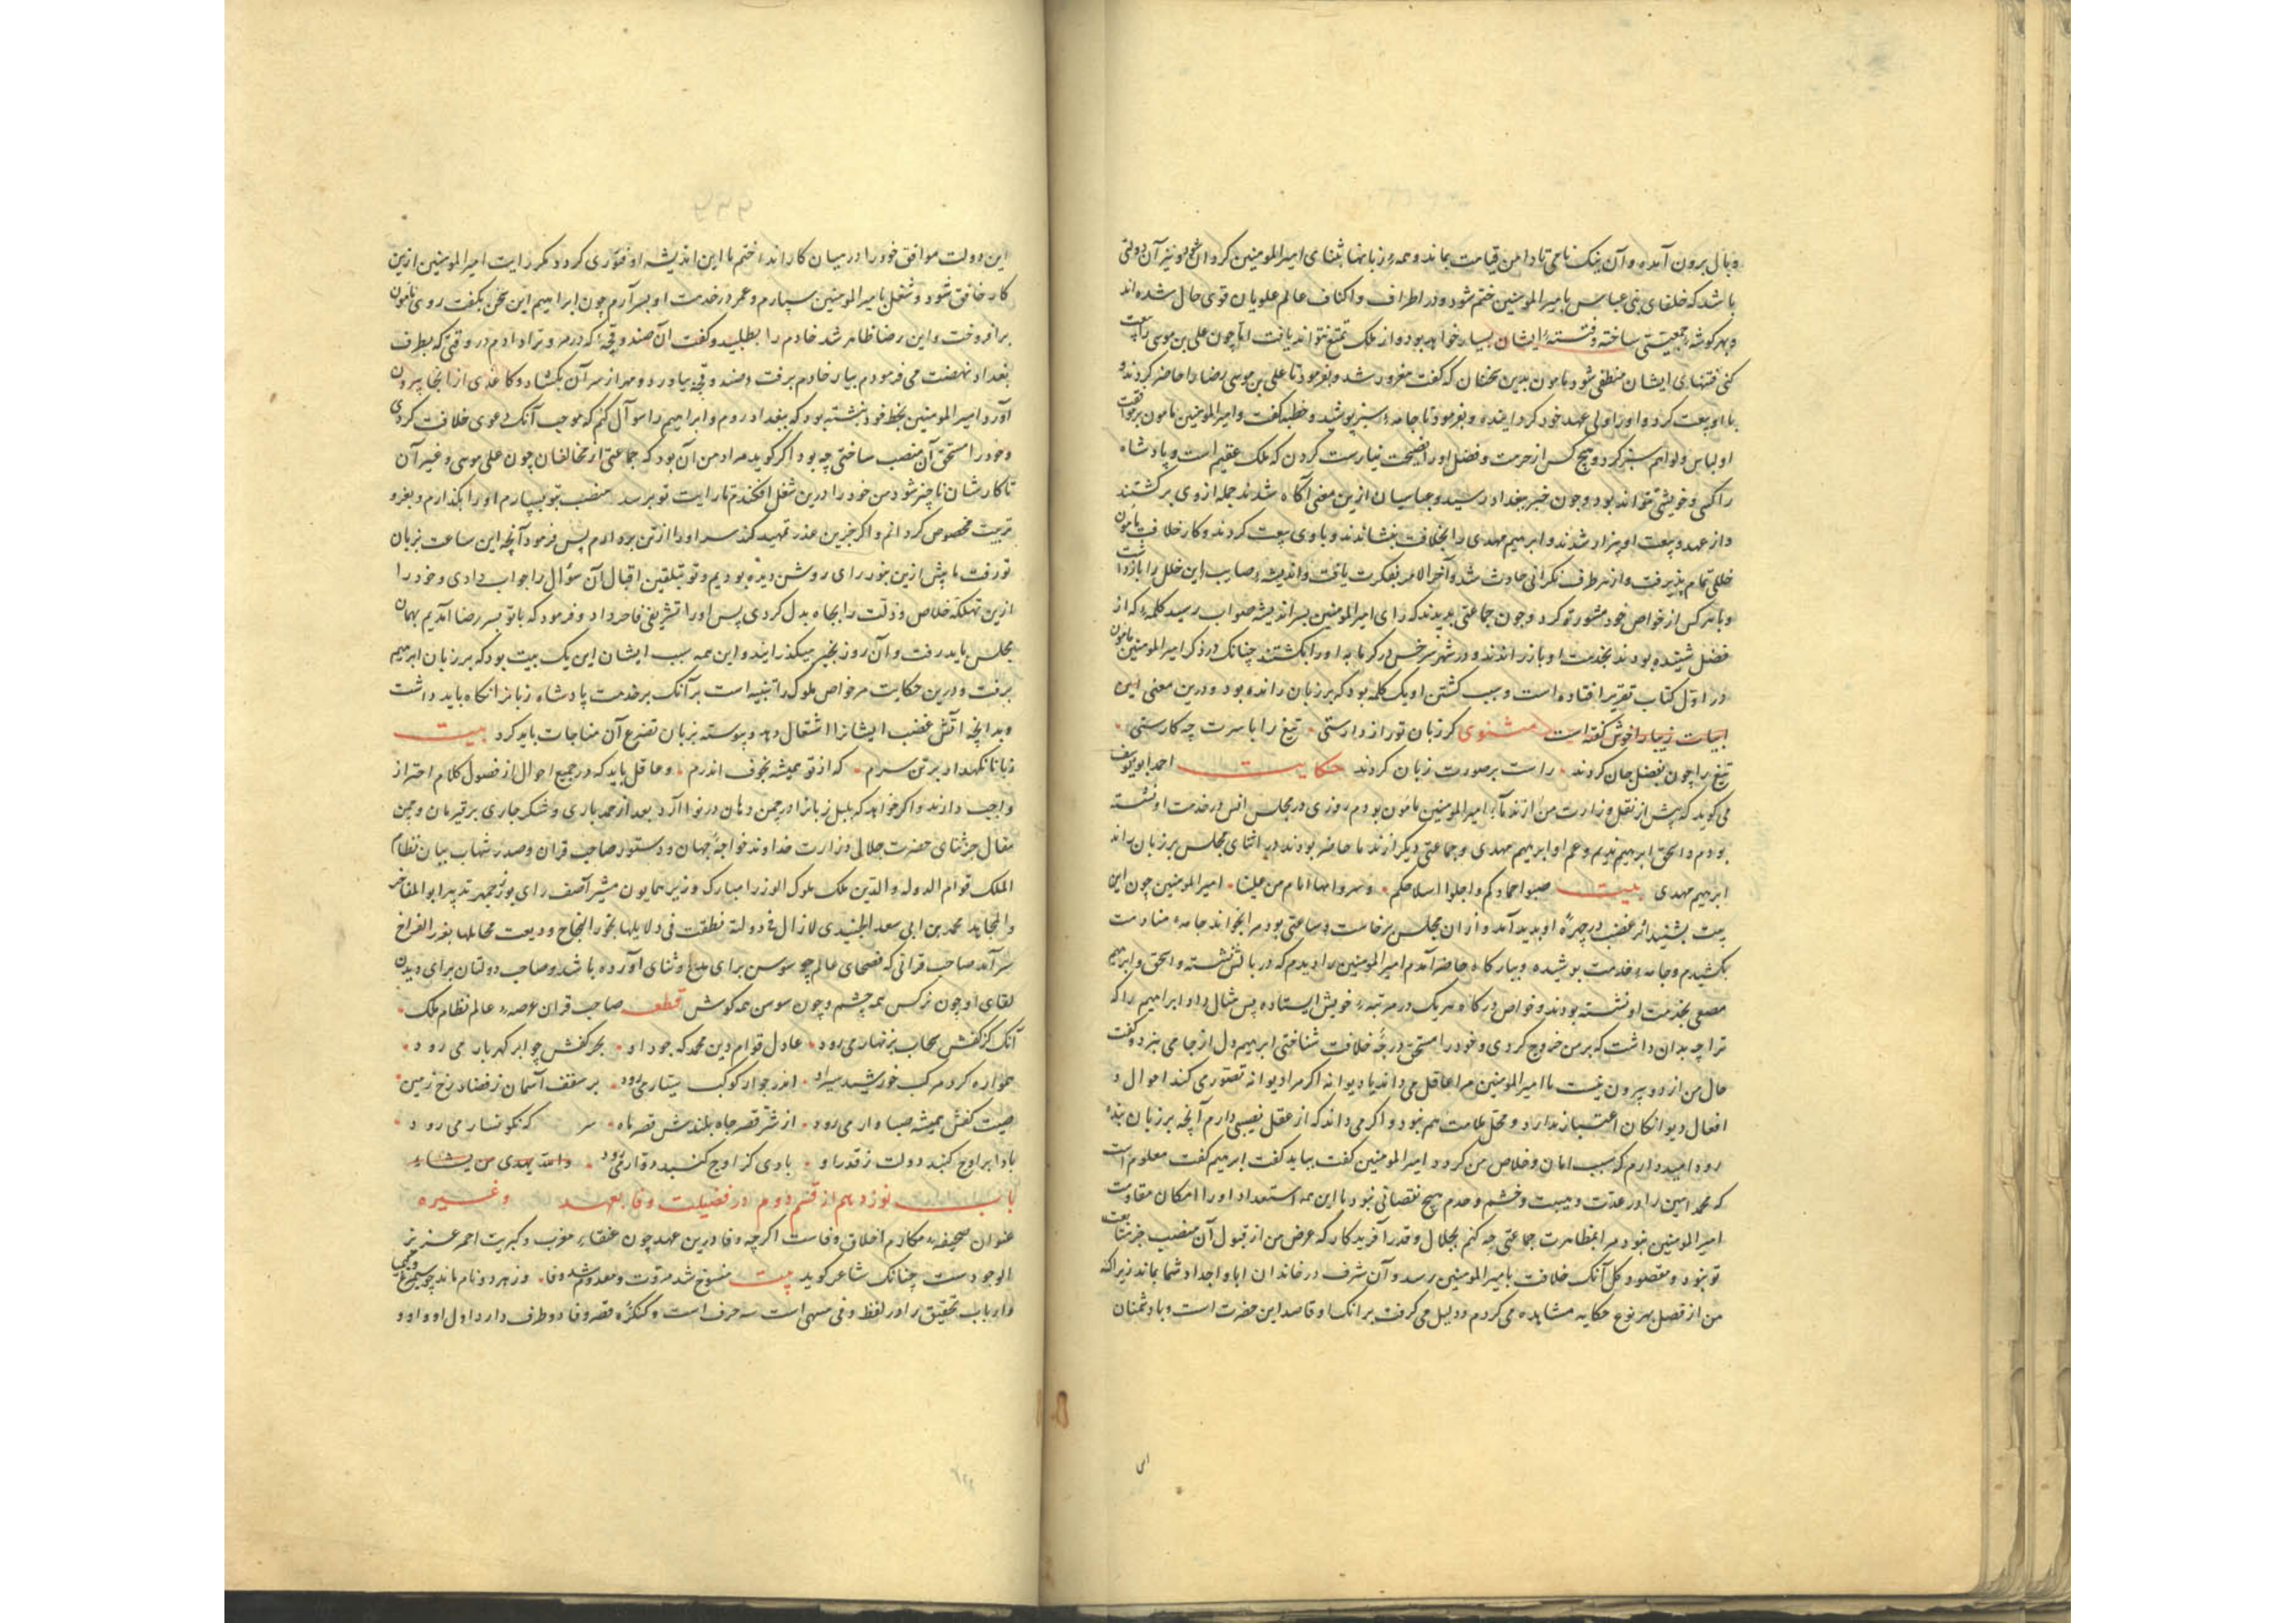 و بال برون آمده و آن ننک نامی تا دامن قیامت بماند و همه زبانها بثنای امیر المومنین کردان شود و نیز آن دولتی
باشد که خلفای بنی عباس بامیر المومنین ختم شود و در اطراف و اکناف عالم علویان قوی حال شده اند
و بهر کوشه جمعیتی ساخته و فتنهٔ ایشان بسیار خواهد بود و از ملک تمتع نتواند یافت اما چون علی بن موسی را بیعت
کنی فتنهای ایشان منطفی شود مامون بدین سخنان که گفت مغرور شد و بفرمود تا علی بن موسی رضا را حاضر کردند و
با او بیعت کرد و او را ولی عهد خود کردانید و بفرمود تا جامهٔ سبز پوشید و خطبه گفت و امیر المومنین مامون بر موافقت
او لباس و لوا هم سبز کرد و هیچ کس از حرمت و فضل او را نصیحت نیارست کردن که ملک عقیم است و پادشاه
را کسی خویشی نتواند بود و چون خبر ببغداد رسید و عباسیان ازین معنی آگاه شدند جمله از وی برگشتند
و از عهد و بیعت او بیزار شدند و ابرهیم مهدی را بخلافت بنشاندند و با وی بیعت کردند و کار خلافت مامون
خللی تمام پذیرفت و از هر طرف نگرانی حادث شد و آخر الامر بفکرت یافت و اندیشهٔ صایب این خلل را باز داشت
و با هر کس از خواص خود مشورت کرد و چون جماعتی بدیدند که رای امیر المومنین بر اندیشه صواب رسید کلمهٔ که از
فضل شنیده بودند بخدمت او باز راندند و در شهر سرخس در گرمابه او را بکشتند چنانک در ذکر امیر المومنین مامون
در اول کتاب تقریر افتاده است و سبب کشتن او یک کلمه بود که بر زبان رانده بود و درین معنی این
ابیات زیبا را خوش گفته است مثنوی گر زبان تو راز دارستی تیغ را با سرت چه کارستی
تیغ را چون بفصل جان کردند راست بر صورت زبان کردند حکایت احمد ابو یوسف
می گوید که پیش از نقل وزارت من از ندماء امیر المومنین مامون بودم روزی در مجلس انس در خدمت او نشسته
بودم و اسحق ابرهیم ندیم و عم او ابرهیم مهدی و جماعتی دیگر از ندما حاضر بودند در اثنای مجلس بر زبان براند
ابرهیم مهدی بیت امیر المومنین چون این
بیت بشنید اثر غضب در چهرهٔ او پدید آمد و از آن مجلس برخاست و ساعتی بود مرا بخواند جامهٔ منادمت
بکشیدم و جامهٔ خدمت پوشیده و ببارگاه حاضر آمدم امیر المومنین را دیدم که در بالش نشسته و اسحق و ابرهیم
مصعبی بخدمت او نشسته بودند و خواص درگاه هر یک در مرتبهٔ خویش ایستاده پس مثال داد ابراهیم را که
ترا چه بدان داشت که بر من خروج کردی و خود را مستحق درجهٔ خلافت شناختی ابرهیم دل از جا می نبرد و گفت
حال من از دو بیرون نیست یا امیر المومنین مرا عاقل می داند یا دیوانه اگر مرا دیوانه تصوری کند احوال و
افعال دیوانگان اعتبار ندارد و محل ملامت هم نبود و اگر می داند که از عقل نصیبی دارم آنچه بر زبان بنده
رود امید دارم که سبب امان و خلاص من گردد امیر المومنین گفت بباید گفت ابرهیم گفت معلوم است
که محمد امین را در عدت و هیبت و خشم و خدم هیچ نقصانی نبود با این همه استعداد او را امکان مقاومت
امیر المومنین نبود مرا بمظاهرت جماعتی چه کنم بجلال و قدر آفریدگار که غرض من از قبول آن منصب جز متابعت
تو نبود و مقصود کل آنک خلافت بامیر المومنین رسد و آن شرف در خاندان ابا و اجداد شما بماند زیرا که
من از فضل بهر نوع حکایه مشاهده می کردم و دلیل می گرفت بر آنک او قاصد این حضرت است و با دشمنان
این دولت موافق خود را در میان کار اند ختم تا این اندیشه او فتوری گردد مگر رایت امیر المومنین ازین
کار خافق شود و شغل بامیر المومنین سپارم و عمر در خدمت او بسر آرم چون ابراهیم این سخن بگفت روی مامون
برافروخت و این رضا ظاهر شد خادم را بطلبید و گفت آن صندوقچهٔ که در مرو ترا دادم در وقتی که بطرف
بغداد نهضت می فرمودم بیار خادم برفت و صندوقچه بیاورد و مهر از سر آن بگشاد و کاغذی از انجا بیرون
آورد امیر المومنین بخط خود نبشته بود که ببغداد روم و ابراهیم را سوال کنم که موجب آنک دعوی خلافت کردی
و خود را مستحق آن منصب ساختی چه بود اگر گوید مراد من آن بود که جماعتی از مخالفان چون علی موسی و غیر آن
تا کارشان ناچیز شود من خود را درین شغل افکندم تا رایت تو برسد منصب بتو بسپارم او را بگذارم و بفر و
تربیت مخصوص گردانم و اگر جزین عذر تمهید کند سر او را از تن بردارم پس فرمود آنچه این ساعت بزبان
تو رفت ما پیش ازین بنور رای روشن دیده بودیم و تو بتلقین اقبال آن سؤال را جواب دادی و خود را
ازین تهلکه خلاص و ذلت را بجاه بدل کردی پس او را تشریفی فاخر داد و فرمود که با تو بسر رضا آمدیم بهمان
مجلس باید رفت و آن روز بخیر میگذرانید و این همه سبب ایشان این یک بیت بود که بر زبان ابرهیم
برفت و درین حکایت مر خواص ملوک را تنبیه است بر آنک بر خدمت پادشاه زبانرا نگاه باید داشت
و بدانچه آتش غضب ایشانرا اشتعال دهد و پیوسته بزبان تضرع آن مناجات باید کرد بیت
زبانا نگهدار بر تن سرم که از تو همیشه بخوف اندرم و عاقل باید که در جمیع احوال از فضول کلام احتراز
واجب دارند و اگر خواهد که بلبل زبانرا در چمن دهان در نوا آرد بعد از حمد باری و شکر جاری بر قیرمان و چمن
مقال جز ثنای حضرت جلالی وزارت خداوند خواجهٔ جهان و دستور صاحب قران و صدر شهاب بیان نظام
الملک قوام الدوله والدین ملک ملوک الوزرا مبارک وزیر همایون مشیر آصف رای بوزرجمهر تدبیر ابو المفاخر
والمحامد محمد بن ابی سعد الجنیدی لازال
سر آمد صاحب قرانی که فصحای عالم چو سوسن برای مدح و ثنای آورده باشد و صاحب دولتان برای دیدن
لقای او چون نرگس همه چشم و چون سوسن همه گوش قطعه صاحب قران عرصهٔ عالم نظام ملک
آنک کز کفش سحاب بزنهار می رود عادل قوام دین محمد که جود او بحر کفش چو ابر گهربار می رود
همواره گرد مرکب خورشید بر سقف آسمان ز فضا و رخ زمین
صیت کفش همیشه صبا وار می رود از شرفه قصر جاه بلندش قصه ماه سر که نگونسار می رود
باد ابر اوج گنبد دولت ز قدر او والله یهدی من یشاء
باب نوزدهم از قسم دوم در فضیلت وفا بعهد و غیره
عنوان صحیفهٔ مکارم اخلاق وفاست اگرچه وفا درین عهد چون عنقاء مغرب و کبریت احمر عزیز
الوجودست چنانک شاعر گوید بیت منسوخ شد مروت و معدوم شد وفا وز هر دو نام ماند چو سیمرغ و کیمیا
و ارباب تحقیق را در لفظ وفی سه حرف است و کنگرهٔ قصر وفا دو طرف دارد اول او واو و